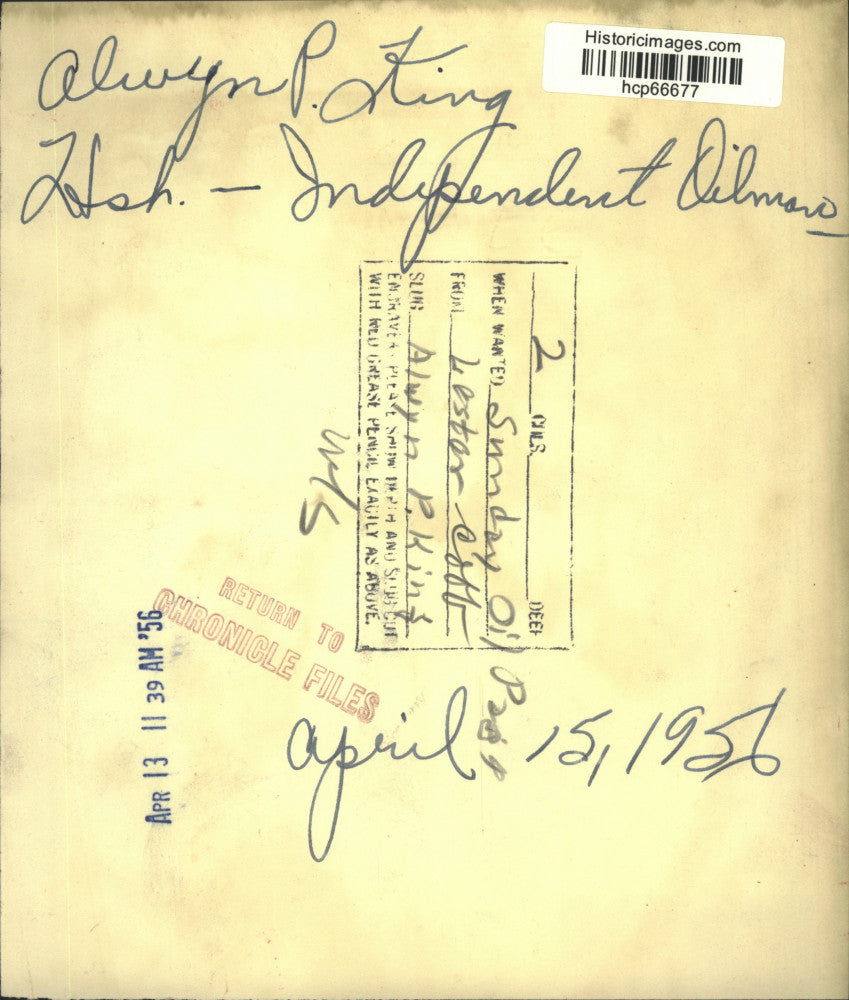 Historicimages.com
hcp66677
Alwyn P. King
Hsh. — Independent Oilman
2 COLS. DEEP
WHEN WANTED Sunday Oil Page
FROM Lester
SLUG Alwyn P. King
ENGRAVER: PLEASE SHOW DEPTH AND SLUG CUT
WITH RED GREASE PENCIL EXACTLY AS ABOVE.
RETURN TO
CHRONICLE FILES
APR 13 11 39 AM '56
April 15, 1956